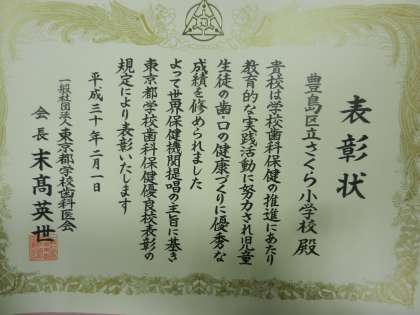 表彰状
豊島区立さくら小学校 殿
貴校は学校歯科保健の推進にあたり
教育的な実践活動に努力され児童
生徒の歯・口の健康づくりに優秀な
成績を修められました
よって世界保健機関提唱の主旨に基き
東京都学校歯科保健優良校表彰の
規定により表彰いたします
平成三十年二月一日
一般社団法人東京都学校歯科医会
会長 末髙英世